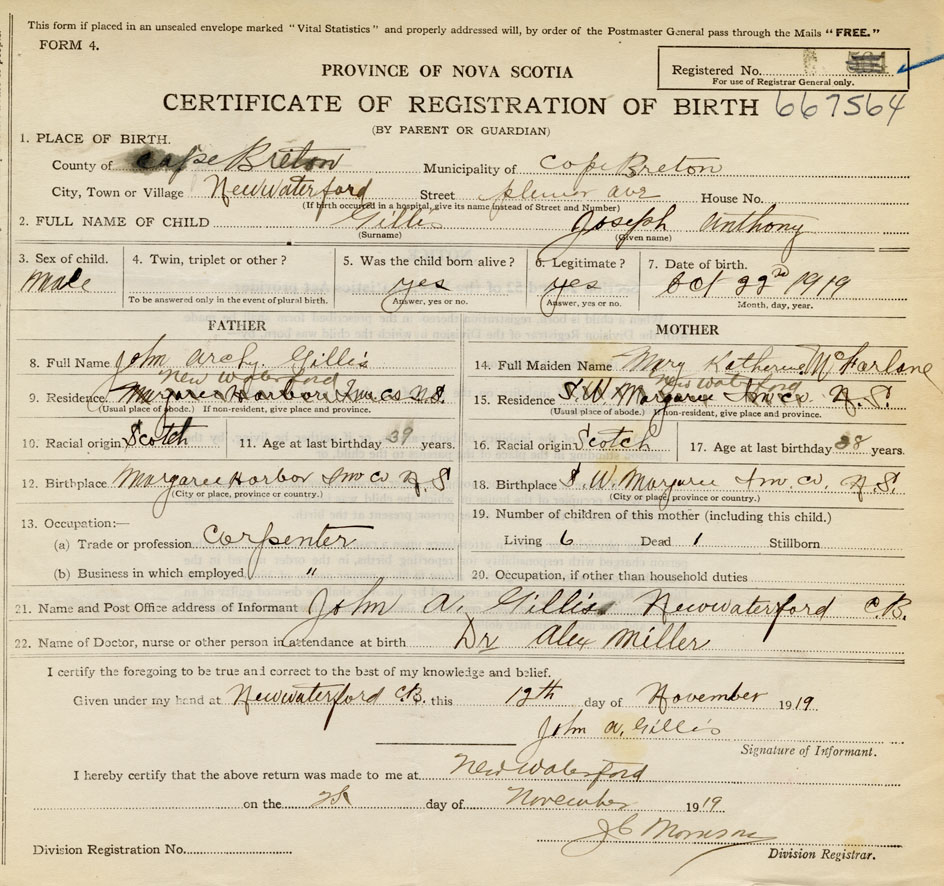 This form if placed in an unsealed envelope marked "Vital Statistics" and properly addressed will, by order of the Postmaster General pass through the Mails "FREE."
FORM 4.
Registered No.
For use of Registrar General only.
PROVINCE OF NOVA SCOTIA
CERTIFICATE OF REGISTRATION OF BIRTH 667564
(BY PARENT OR GUARDIAN)
1. PLACE OF BIRTH.
County of Cape Breton Municipality of Cape Breton
City, Town or Village New Waterford Street ave House No.
(If birth occured in a hospital, give its name instead of Street and Number)
2. FULL NAME OF CHILD Gillis Joseph Anthony
(Surname) (Given name)
3. Sex of child. 4. Twin, triplet or other? 5. Was the child born alive? 6. Legitimate? 7. Date of birth.
Male yes yes Oct 22nd 1919
To be answered only in the event of plural birth. Answer, yes or no. Answer, yes or no. Month, day, year.
FATHER MOTHER
8. Full Name John Archy Gillis 14. Full Maiden Name Mary Katherine McFarlane
New Waterford New Waterford
9. Residence Margaree Harbor Inv Co N.S. 15. Residence S.W. Margaree Inv Co. N.S.
(Usual place of abode.) If non-resident, give place and province. (Usual place of abode.) If non-resident, give place and province.
10. Racial origin Scotch 11. Age at last birthday 39 years. 16. Racial origin Scotch 17. Age at last birthday 38 years.
12. Birthplace Margaree Harbor Inv Co N.S 18. Birthplace S.W. Margaree Inv. Co. N.S.
(City or place, province or country.) (City or place, province or country.)
13. Occupation:— 19. Number of children of this mother (including this child.)
(a) Trade or profession Carpenter Living 6 Dead 1 Stillborn
(b) Business in which employed " 20. Occupation, if other than household duties
21. Name and Post Office address of Informant John A. Gillis New Waterford C.B.
22. Name of Doctor, nurse or other person in attendance at birth Dr Alex Miller
I certify the foregoing to be true and correct to the best of my knowledge and belief.
Given under my hand at New Waterford C.B. this 12th day of November 1919.
John A. Gillis
Signature of Informant.
I hereby certify that the above return was made to me at New Waterford
on the day of November 1919
J C Morrison
Division Registration No. Division Registrar.